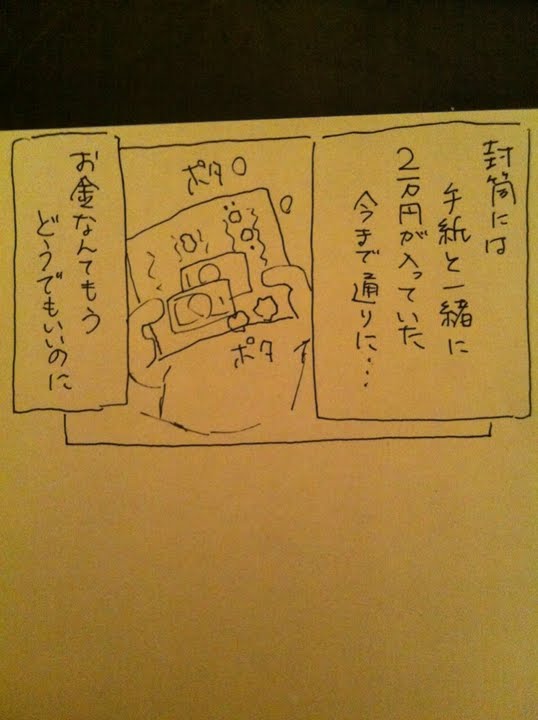 封筒には
手紙と一緒に
2万円が入っていた
今まで通りに…
ポタ
ポタ
お金なんてもう
どうでもいいのに